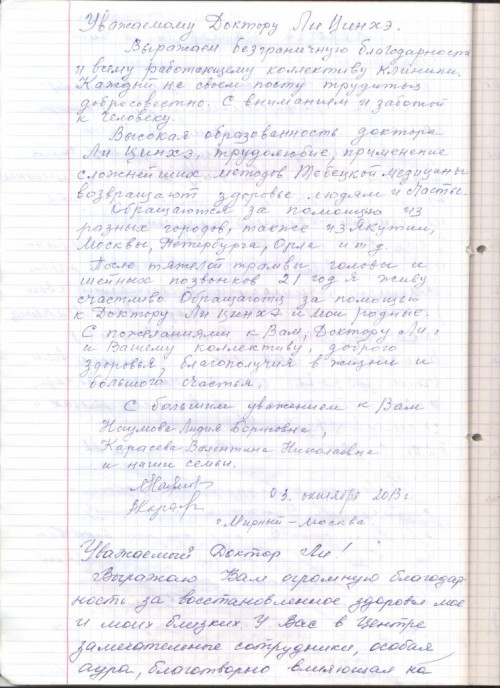 Уважаемому Доктору Ли Цинхэ.
Выражаем безграничную благодарность
и всему работающему коллективу Клиники.
Каждый на своем посту трудитья
добросовестно. С вниманием и заботой
к Человеку.
Высокая образованность доктора
Ли Цинхэ, трудолюбие, применение
сложнейших методов Тебецкой медицины
возвращают здоровье людям и счастье.
Обращаются за помощью из
разных городов, также из Якутии,
Москвы, Петербурга, Орла и т.д.
После тяжелой трамвы головы и
шейных позвонков 21 год я живу
счастливо. Обращаются за помощью
к Доктору Ли Цинхэ и мои родные.
С пожеланиями к Вам, Доктору Ли,
и Вашему коллективу, доброго
здоровья, благополучия в жизни и
большого счастья.
С большим уважением к Вам
Лидия Борисовна,
Карасева Валентина Николаевна
и наши семьи.
03. октября 2013 г.
г. Мирный – Москва
Уважаемый Доктор Ли!
Выражаю Вам огромную благодар-
ность за восстановленное здоровье мое
и моих близких. У Вас в Центре
замечательные сотрудники, особая
аура, благотворно влияющая на